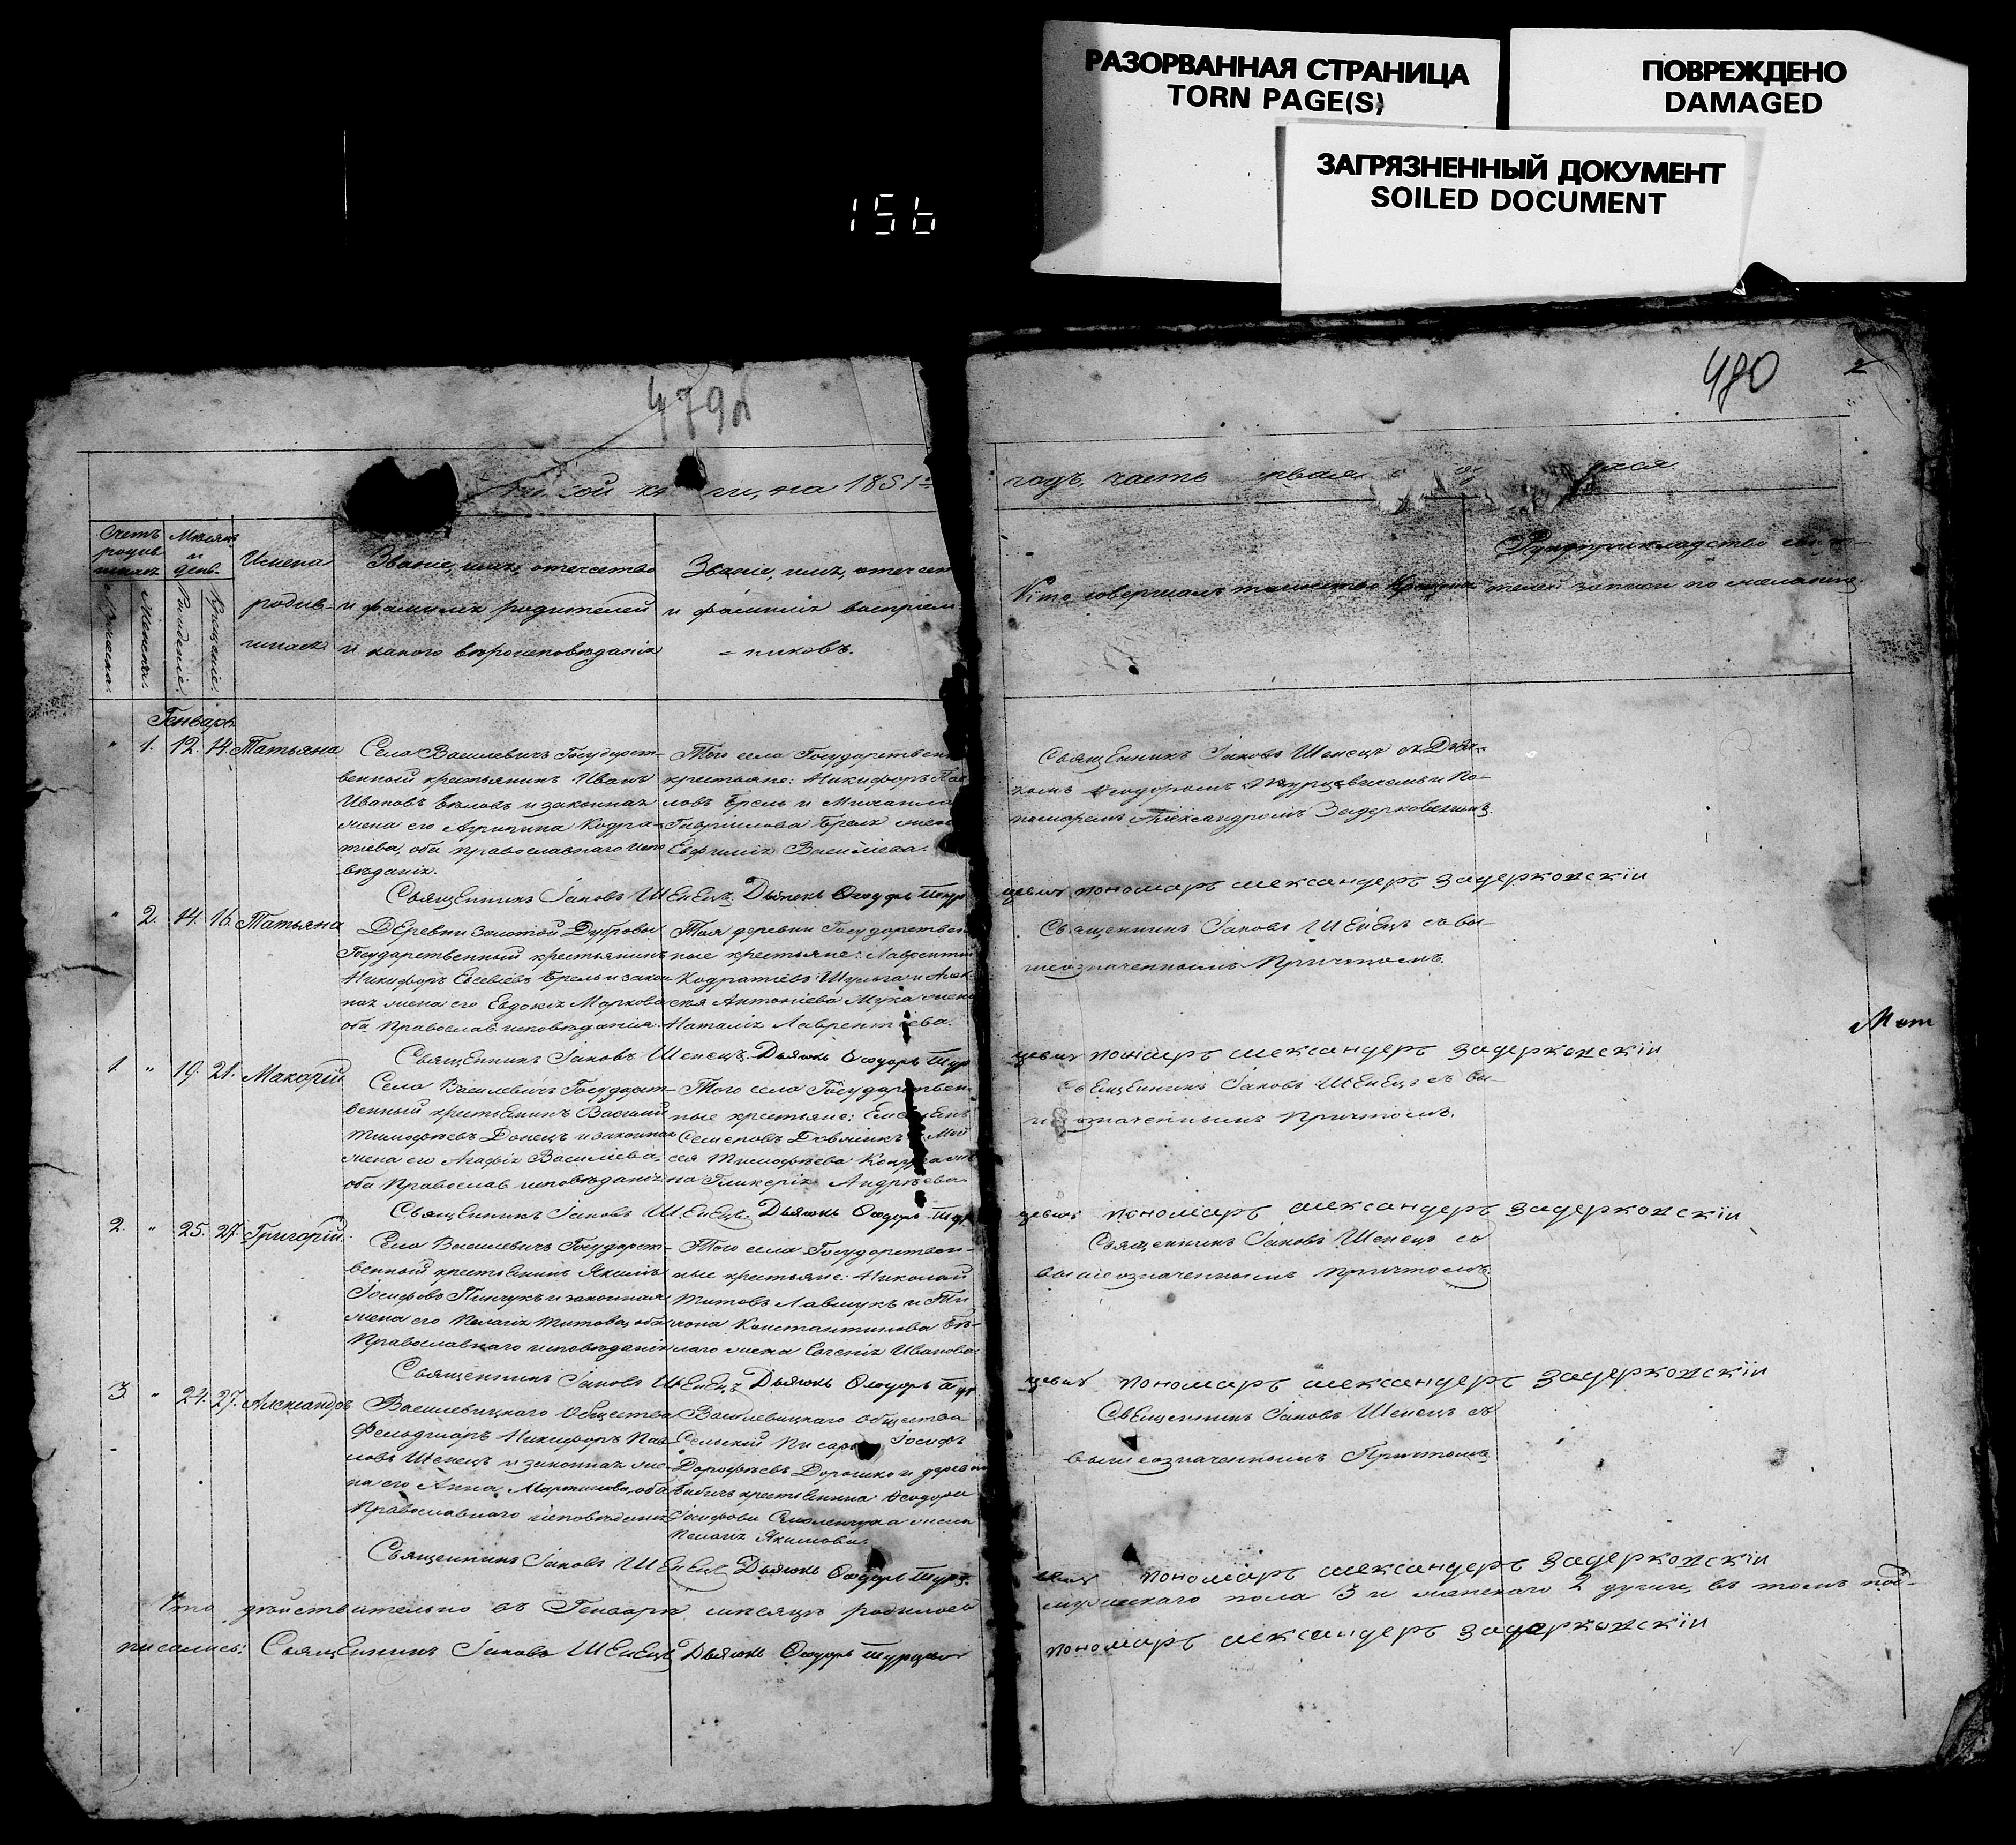 РАЗОРВАННАЯ СТРАНИЦА
TORN PAGE(S)
ПОВРЕЖДЕНО
DAMAGED
ЗАГРЯЗНЕННЫЙ ДОКУМЕНТ
SOILED DOCUMENT
156
479
480
2
на 1851
годъ, часть
Счетъ
Мѣсяцъ
и
день
Имена
родив-
Званіе, имя, отчество
и фамилія родителей
и какого вѣроисповѣданія
Званіе, имя, отчест
и фамилія воспріем
-никовъ.
Кто совершалъ таинство крещенія
Рукоприкладство
записи по желанію.
Мужеска.
Женска.
Рожденіе.
Крещеніе.
Генварь
" 1. 12. 14. Татьяна
Села Василевичъ Государст-
венный крестьянинъ Иванъ
Ивановъ Бѣловъ и законная
жена его Кодра-
тіева, оба православнаго испо
вѣданія.
Того села Государствен
крестьяне: Никифоръ Пав
ловъ Брель и Михаила
Гавріилова Брель жена
Евфимія Васильева.
Священникъ Іаковъ Шенецъ съ Дьяч-
комъ Ѳеодоромъ Турцевичемъ и По-
номаремъ Александромъ Задерковскимъ.
Священникъ Іаковъ Шенецъ Дьячокъ Ѳеодоръ Тур
цевичъ пономаръ александеръ задерковскій
" 2. 14. 16. Татьяна
Деревни Золотой Дубровы
Государственный крестьянинъ
Никифоръ Евсевіевъ Брель и закон
ная жена его Евдокія Маркова
оба Православ. исповѣданія.
Тоя деревни Государствен
ные крестьяне: Лаврентій
Кодратіевъ Шульга и Алек
сѣя Антоніева Мука жена
Наталія Лаврентіева.
Священникъ Іаковъ Шенецъ съ вы-
шеозначеннымъ Причтомъ.
Священникъ Іаковъ Шенецъ Дьячокъ Ѳеодоръ Тур
цевичъ пономаръ александеръ задерковскій
Мет
1. " 19. 21. Макарій
Села Василевичъ Государст-
венный крестьянинъ Василій
Тимофѣевъ Донецъ и законная
жена его Агафія Василіева,
оба Православ исповѣданія
Того села Государствен
ные крестьяне:
Семеновъ
сея Тимофѣева
на Гликерія Андреева.
Священникъ Іаковъ Шенецъ съ вы-
шеозначеннымъ причтомъ.
Священникъ Іаковъ Шенецъ Дьячокъ Ѳеодоръ Тур
цевичъ пономаръ александеръ задерковскій
2. " 25. 27. Григорій
Села Василевичъ Государст-
венный крестьянинъ Якимъ
Іосифовъ Пинчукъ и законная
жена его Пелагія Титова, оба
Православнаго исповѣданія
Того села Государствен-
ные крестьяне: Николай
Титовъ Лавшукъ и Ти
хона Константинова Бѣ-
лаго жена Евгенія Иванова
Священникъ Іаковъ Шенецъ съ
вышеозначеннымъ причтомъ.
Священникъ Іаковъ Шенецъ Дьячокъ Ѳеодоръ Тур
цевичъ пономаръ александеръ задерковскій
3. " 24. 27. Александръ
Василевицкаго Общества
Фельдшаръ Никифоръ Пав-
ловъ Шенецъ и законная же-
на его Анна Мартинова, оба
Православнаго исповѣданія
Василевицкаго общества
Сельскій Писарь Іосифъ
Дорофѣевъ Дорошко и деревни
Бабичъ крестьянина Ѳеодора
Іосифова жена
Пелагія Якимова.
Священникъ Іаковъ Шенецъ съ
вышеозначеннымъ Причтомъ
Священникъ Іаковъ Шенецъ Дьячокъ Ѳеодоръ Турц
пономаръ александеръ задерковскій
Что дѣйствительно въ Генварѣ мѣсяцѣ родилось
мужескаго пола 3 и женскаго 2 души, въ томъ под-
писались: Священникъ Іаковъ Шенецъ Дьячокъ Ѳеодоръ Турцевичъ
пономаръ александеръ задерковскій